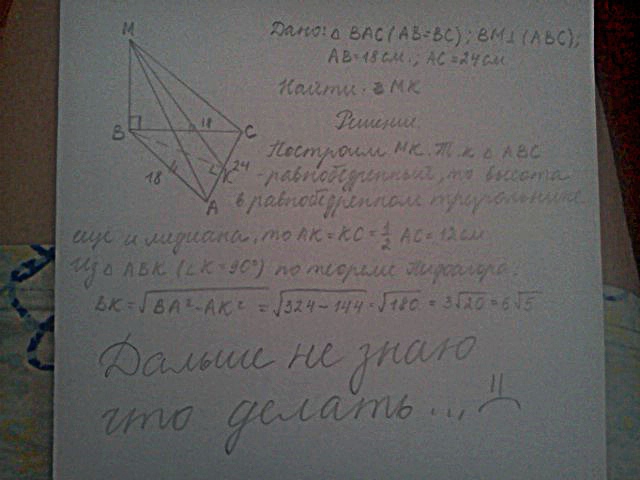 M
B
18
C
18
K
24
A
Дано: Δ BAC (AB=BC); BM⊥(ABC);
AB=18см.; AC=24см
Найти. MK
Решение.
Построим MK. Т.к Δ ABC
-равнобедренный, то высота
в равнобедренном треугольнике
ещё и медиана, то AK=KC=½ AC=12см
Из Δ ABK (∠K=90°) по теореме Пифагора:
BK=√BA²-AK² =√324-144=√180 = 3√20=6√5
Дальше не знаю
что делать...